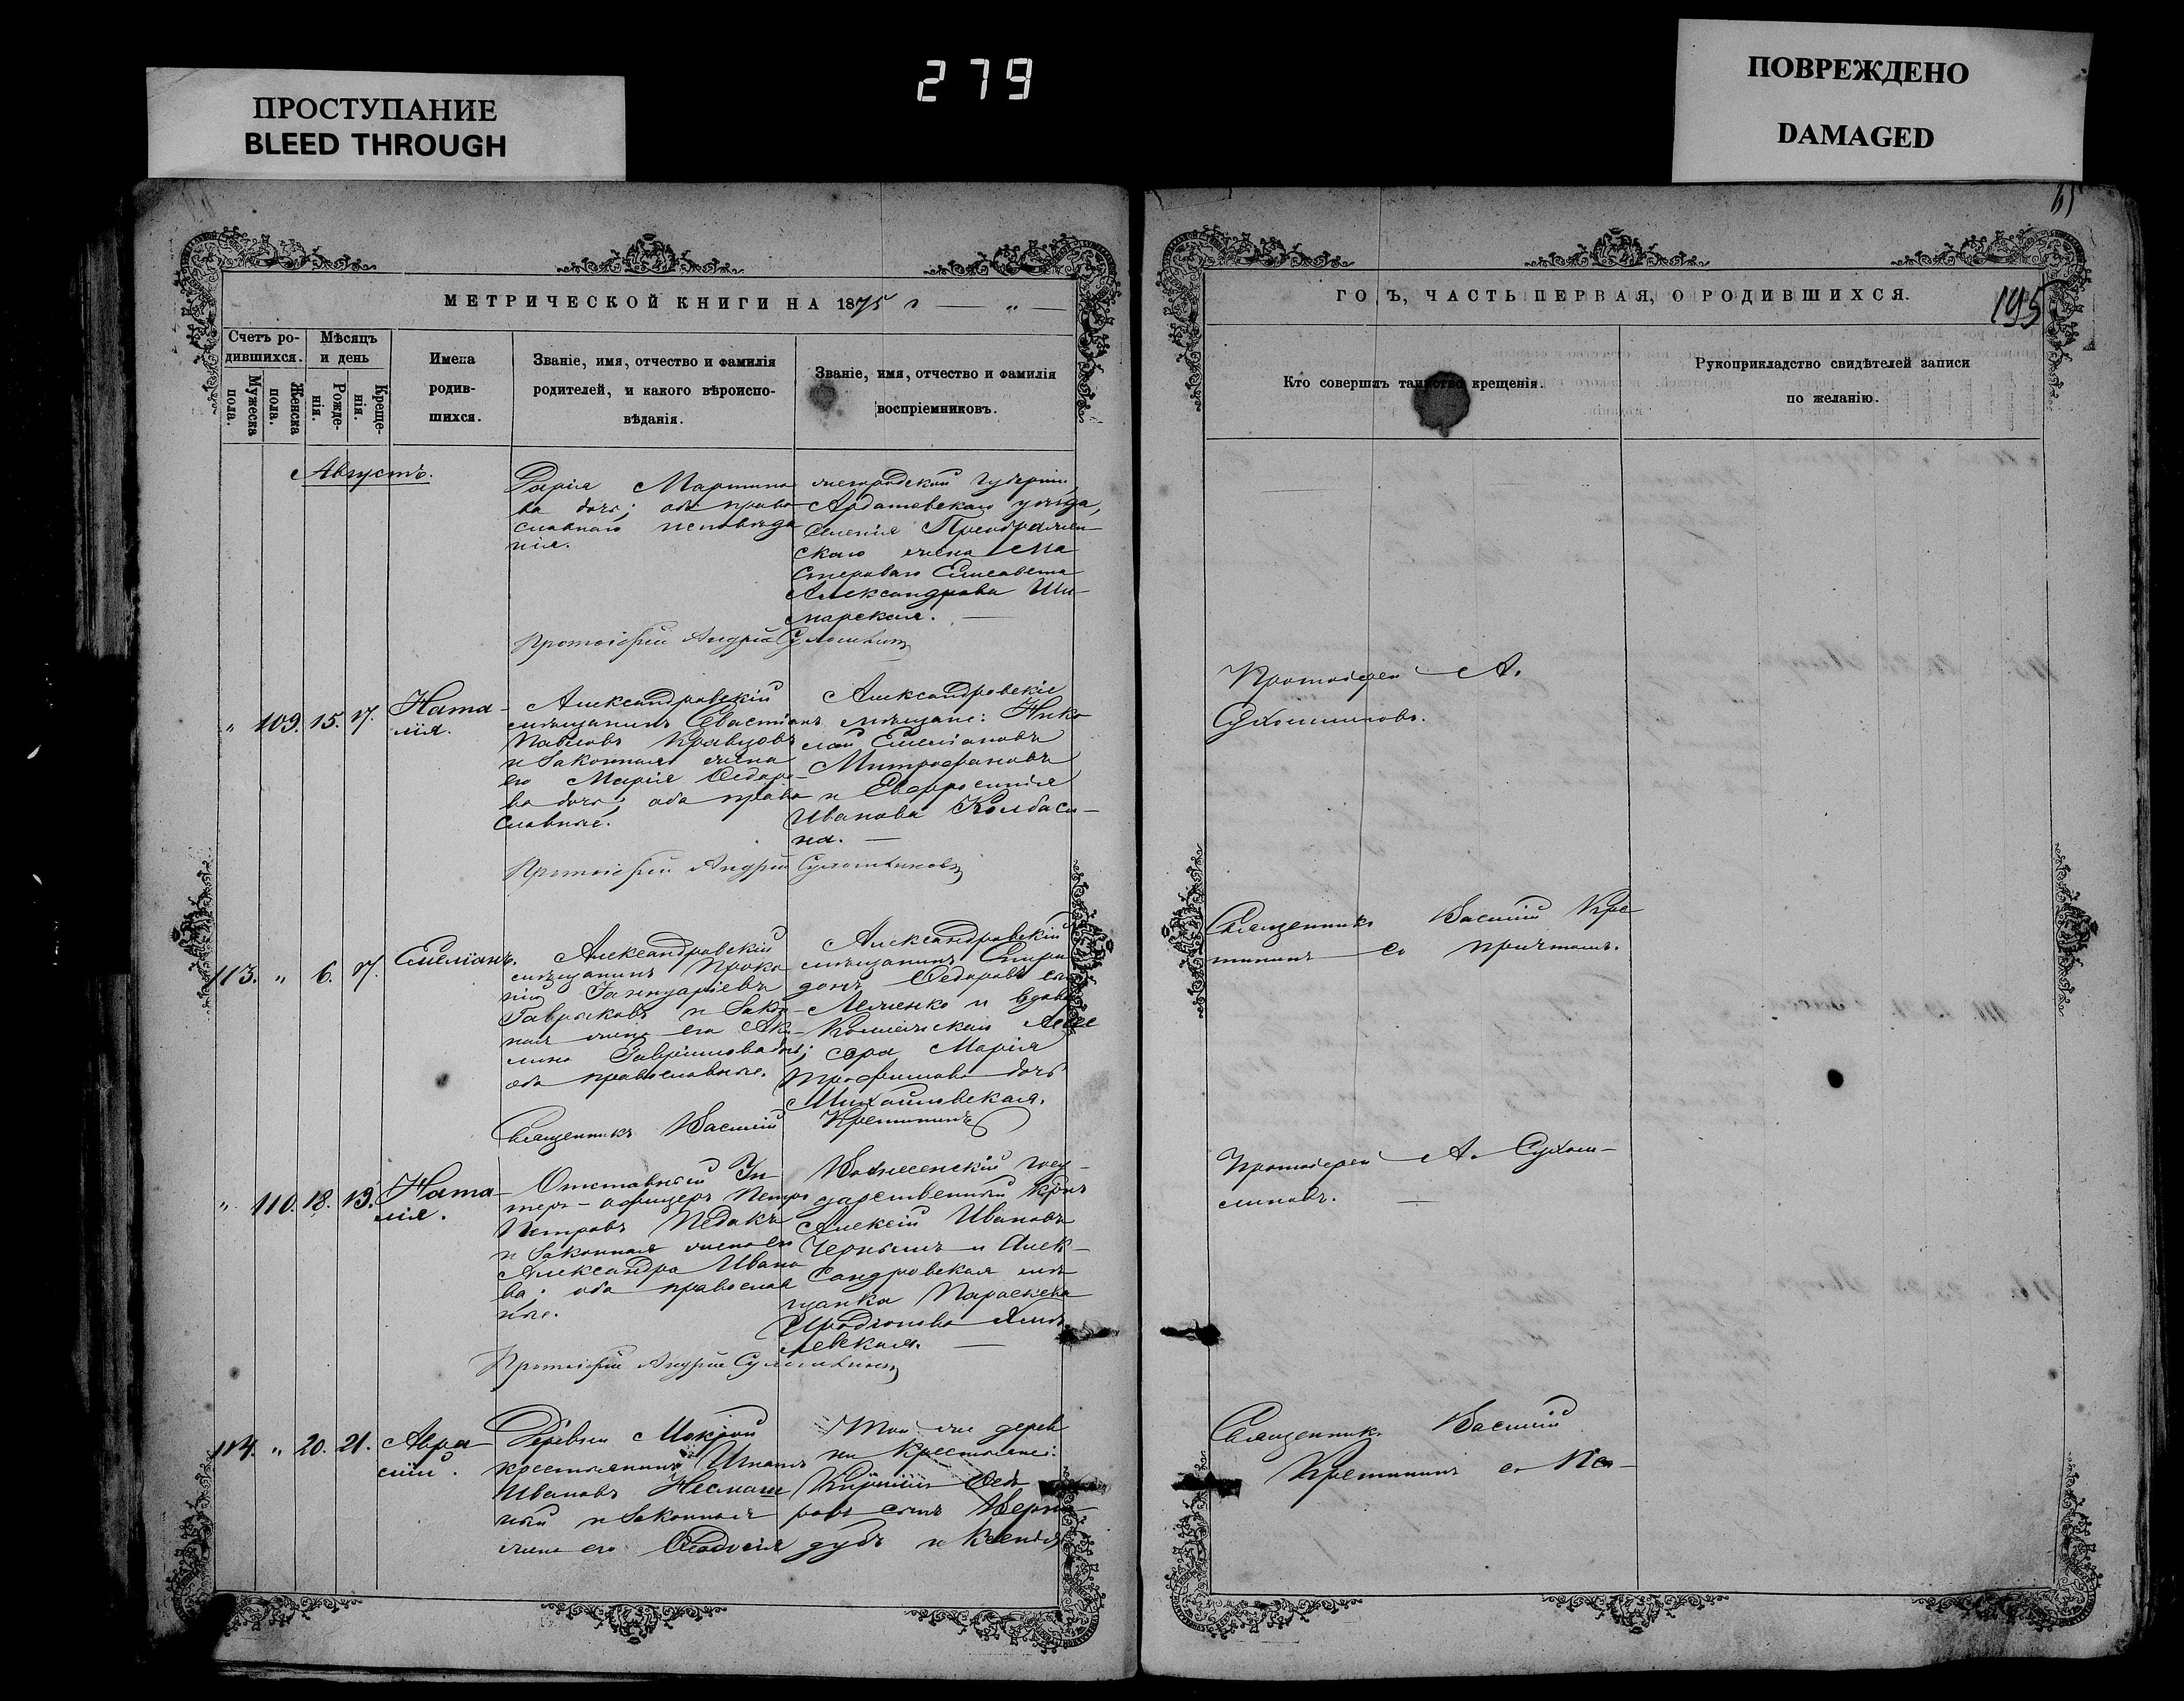 279
ПРОСТУПАНИЕ
BLEED THROUGH
ПОВРЕЖДЕНО
DAMAGED
МЕТРИЧЕСКОЙ КНИГИ НА 1875 г
Счетъ ро-
дившихся.
Мужеска
пола.
Женска
пола.
Мѣсяцъ
и день
Рожде-
нія.
Креще-
нія.
Имена
родив-
шихся.
Званіе, имя, отчество и фамилія
родителей, и какого вѣроиспо-
вѣданія.
Званіе, имя, отчество и фамилія
воспріемниковъ.
Августъ.
Дарія Мартино
ва дочь; оба право
славнаго исповѣда
нія.
Ардатовскаго уѣзда,
селенія Преображен
скаго жена Ма
Елисавета
Александрова Ши-
марская.
Протоіерей Андрей
" 109. 15. 17.
Ната-
лія.
Александровскій
мѣщанинъ Севастіанъ
Павловъ Кравцовъ
и законная жена
его Марія Ѳедоро-
ва дочь; оба право
славные.
Александровскіе
мѣщане: Нико
лай Емеліановъ
Митрофановъ
и Евфросинія
Иванова Колбаси-
на.
Протоіерей Андрей
113. " 6. 17.
Емеліанъ.
Александровскій
мѣщанинъ Проко
пій Іаннуаріевъ
и закон-
ная жена его Аку-
лина Гавріилова дочь;
оба православные.
Александровскій
мѣщанинъ Спири
донъ Ѳедоровъ сынъ
и вдова
Коллежскаго Ассе
сора Марія
Трофимова дочь
Михайловская.
Священникъ Василій Кремининъ
" 110. 18. 19.
Ната-
лія.
Отставный Ун-
теръ-офицеръ Петръ
Петровъ Педакъ
и законная жена его
Александра Ивано
ва; оба православ
ные.
Вознесенскій госу-
дарственный крес
Алексій Ивановъ
Чернышъ и Алек-
сандровская мѣ
щанка Параскева
Иродіонова Хмѣ
левская.
Протоіерей Андрей
114. " 20. 21.
Авра-
мій.
Деревни Мокрой
крестьянинъ Игнатъ
Ивановъ
и законная
жена его Ѳеодосія
Той же дерев
ни крестьяне:
Кириллъ Ѳедо
ровъ сынъ Верни
дубъ и Ксенія
ГО Ъ, ЧАСТЬ ПЕРВАЯ, О РОДИВШИХСЯ.
195
Кто совершалъ таинство крещенія.
Рукоприкладство свидѣтелей записи
по желанію.
Протоіерей А.
Священникъ Василій Кре
мининъ съ причтомъ.
Протоіерей А.
Священникъ Василій
Кремининъ съ